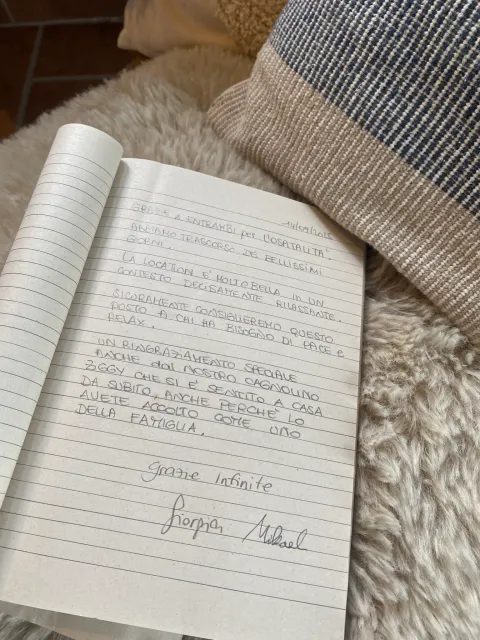 14/09/2025
GRAZIE A ENTRAMBI per L'OSPITALITA'.
ABBIAMO TRASCORSO DEI BELLISSIMI
GIORNI.
LA LOCATION E' MOLTO BELLA IN UN
CONTESTO DECISAMENTE RILASSANTE.
SICURAMENTE CONSIGLIEREMO QUESTO
POSTO A CHI HA BISOGNO DI PACE e
RELAX.
UN RINGRAZIAMENTO SPECIALE
ANCHE dal NOSTRO CAGNOLINO
ZIGGY CHE SI E' SENTITO A CASA
DA SUBITO, ANCHE PERCHE' LO
AVETE ACCOLTO COME UNO
DELLA FAMIGLIA.
Grazie Infinite
Giorgia Mikael